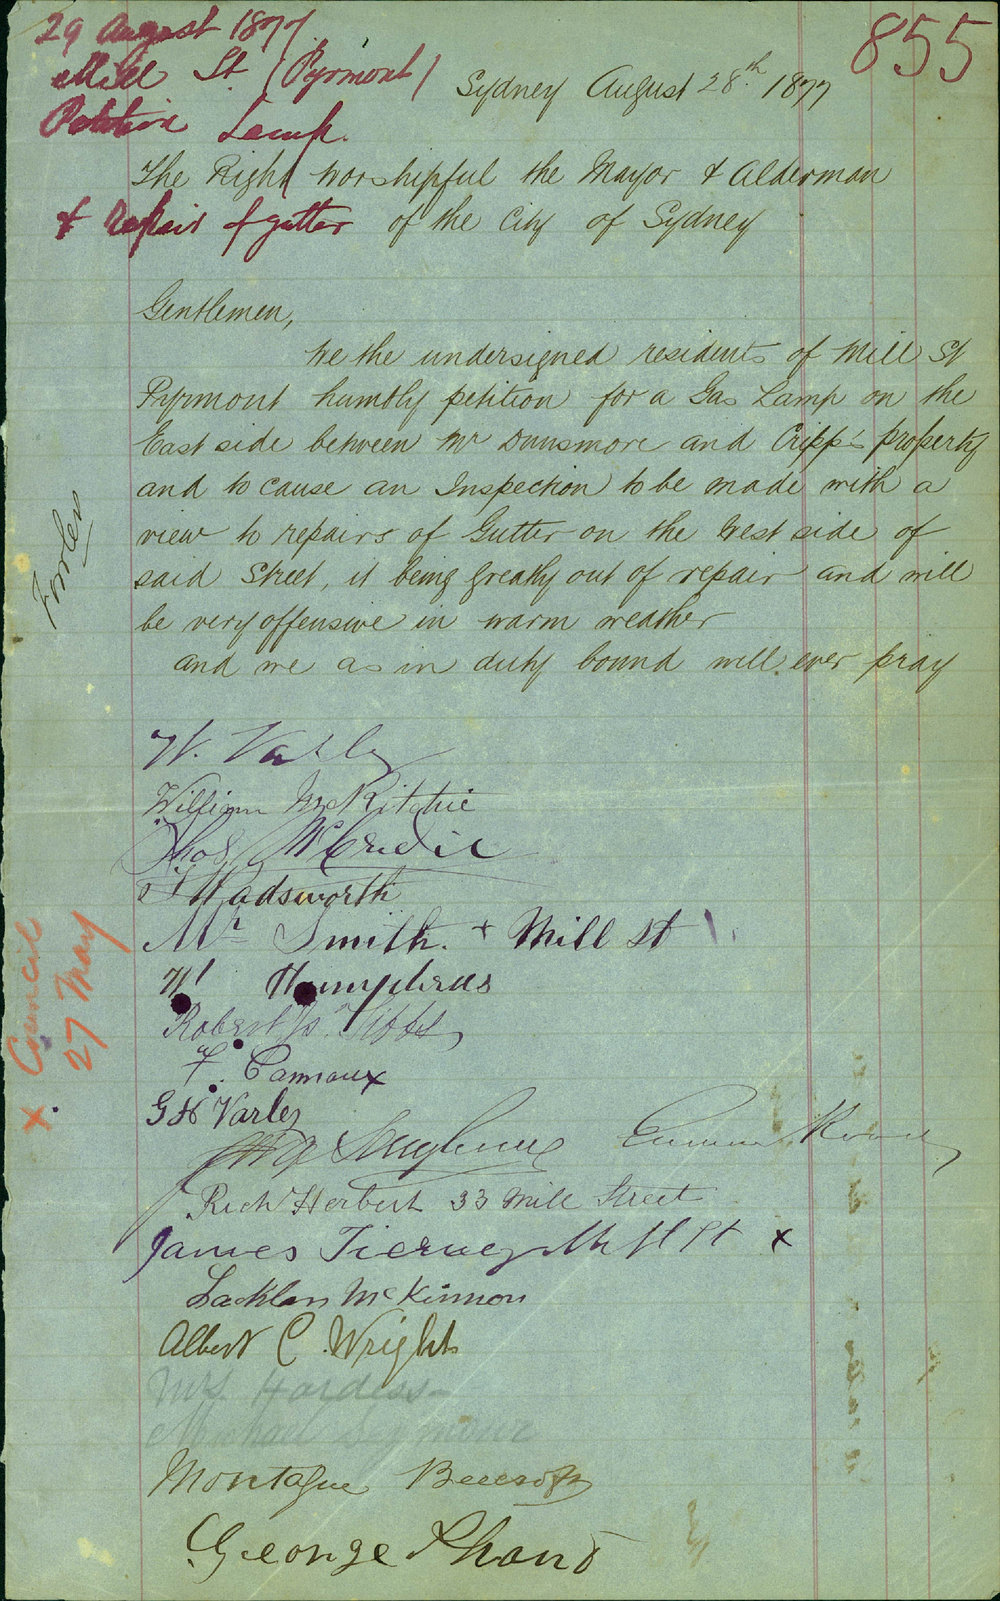 29 August 1877
855
Mill St (Pyrmont)
Sydney August 28th 1877
Petition Lamp.
The Right Worshipful the Mayor & Alderman
& Repair of gutter
of the City of Sydney
Gentlemen,
We the undersigned residents of Mill St
Pyrmont humbly petition for a Gas Lamp on the
East side between Mr Dunsmore and Cripp's property
and to cause an Inspection to be made with a
view to repairs of Gutter on the West side of
said Street, it being greatly out of repair and will
be very offensive in warm weather
and we as in duty bound will ever pray
Fowler
W. Varley
William McRitchie
Thos McCredie
Wadsworth
Mr Smith. + Mill St
x Council
27 May
W Humphreus
Robert Tibbs
F. Cannaux
G H Varley
Richd Herbert 33 Mill Street
James Tierney Mill St x
Lachlan McKinnon
Albert C. Wright
Mrs Hardess
Michael Seymour
Montague
George Shand